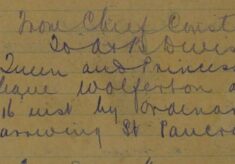 From Chief Const
To A & B Divis
Queen and Princess
leave Wolferton a
16 inst by ordinar
arriving St Pancra